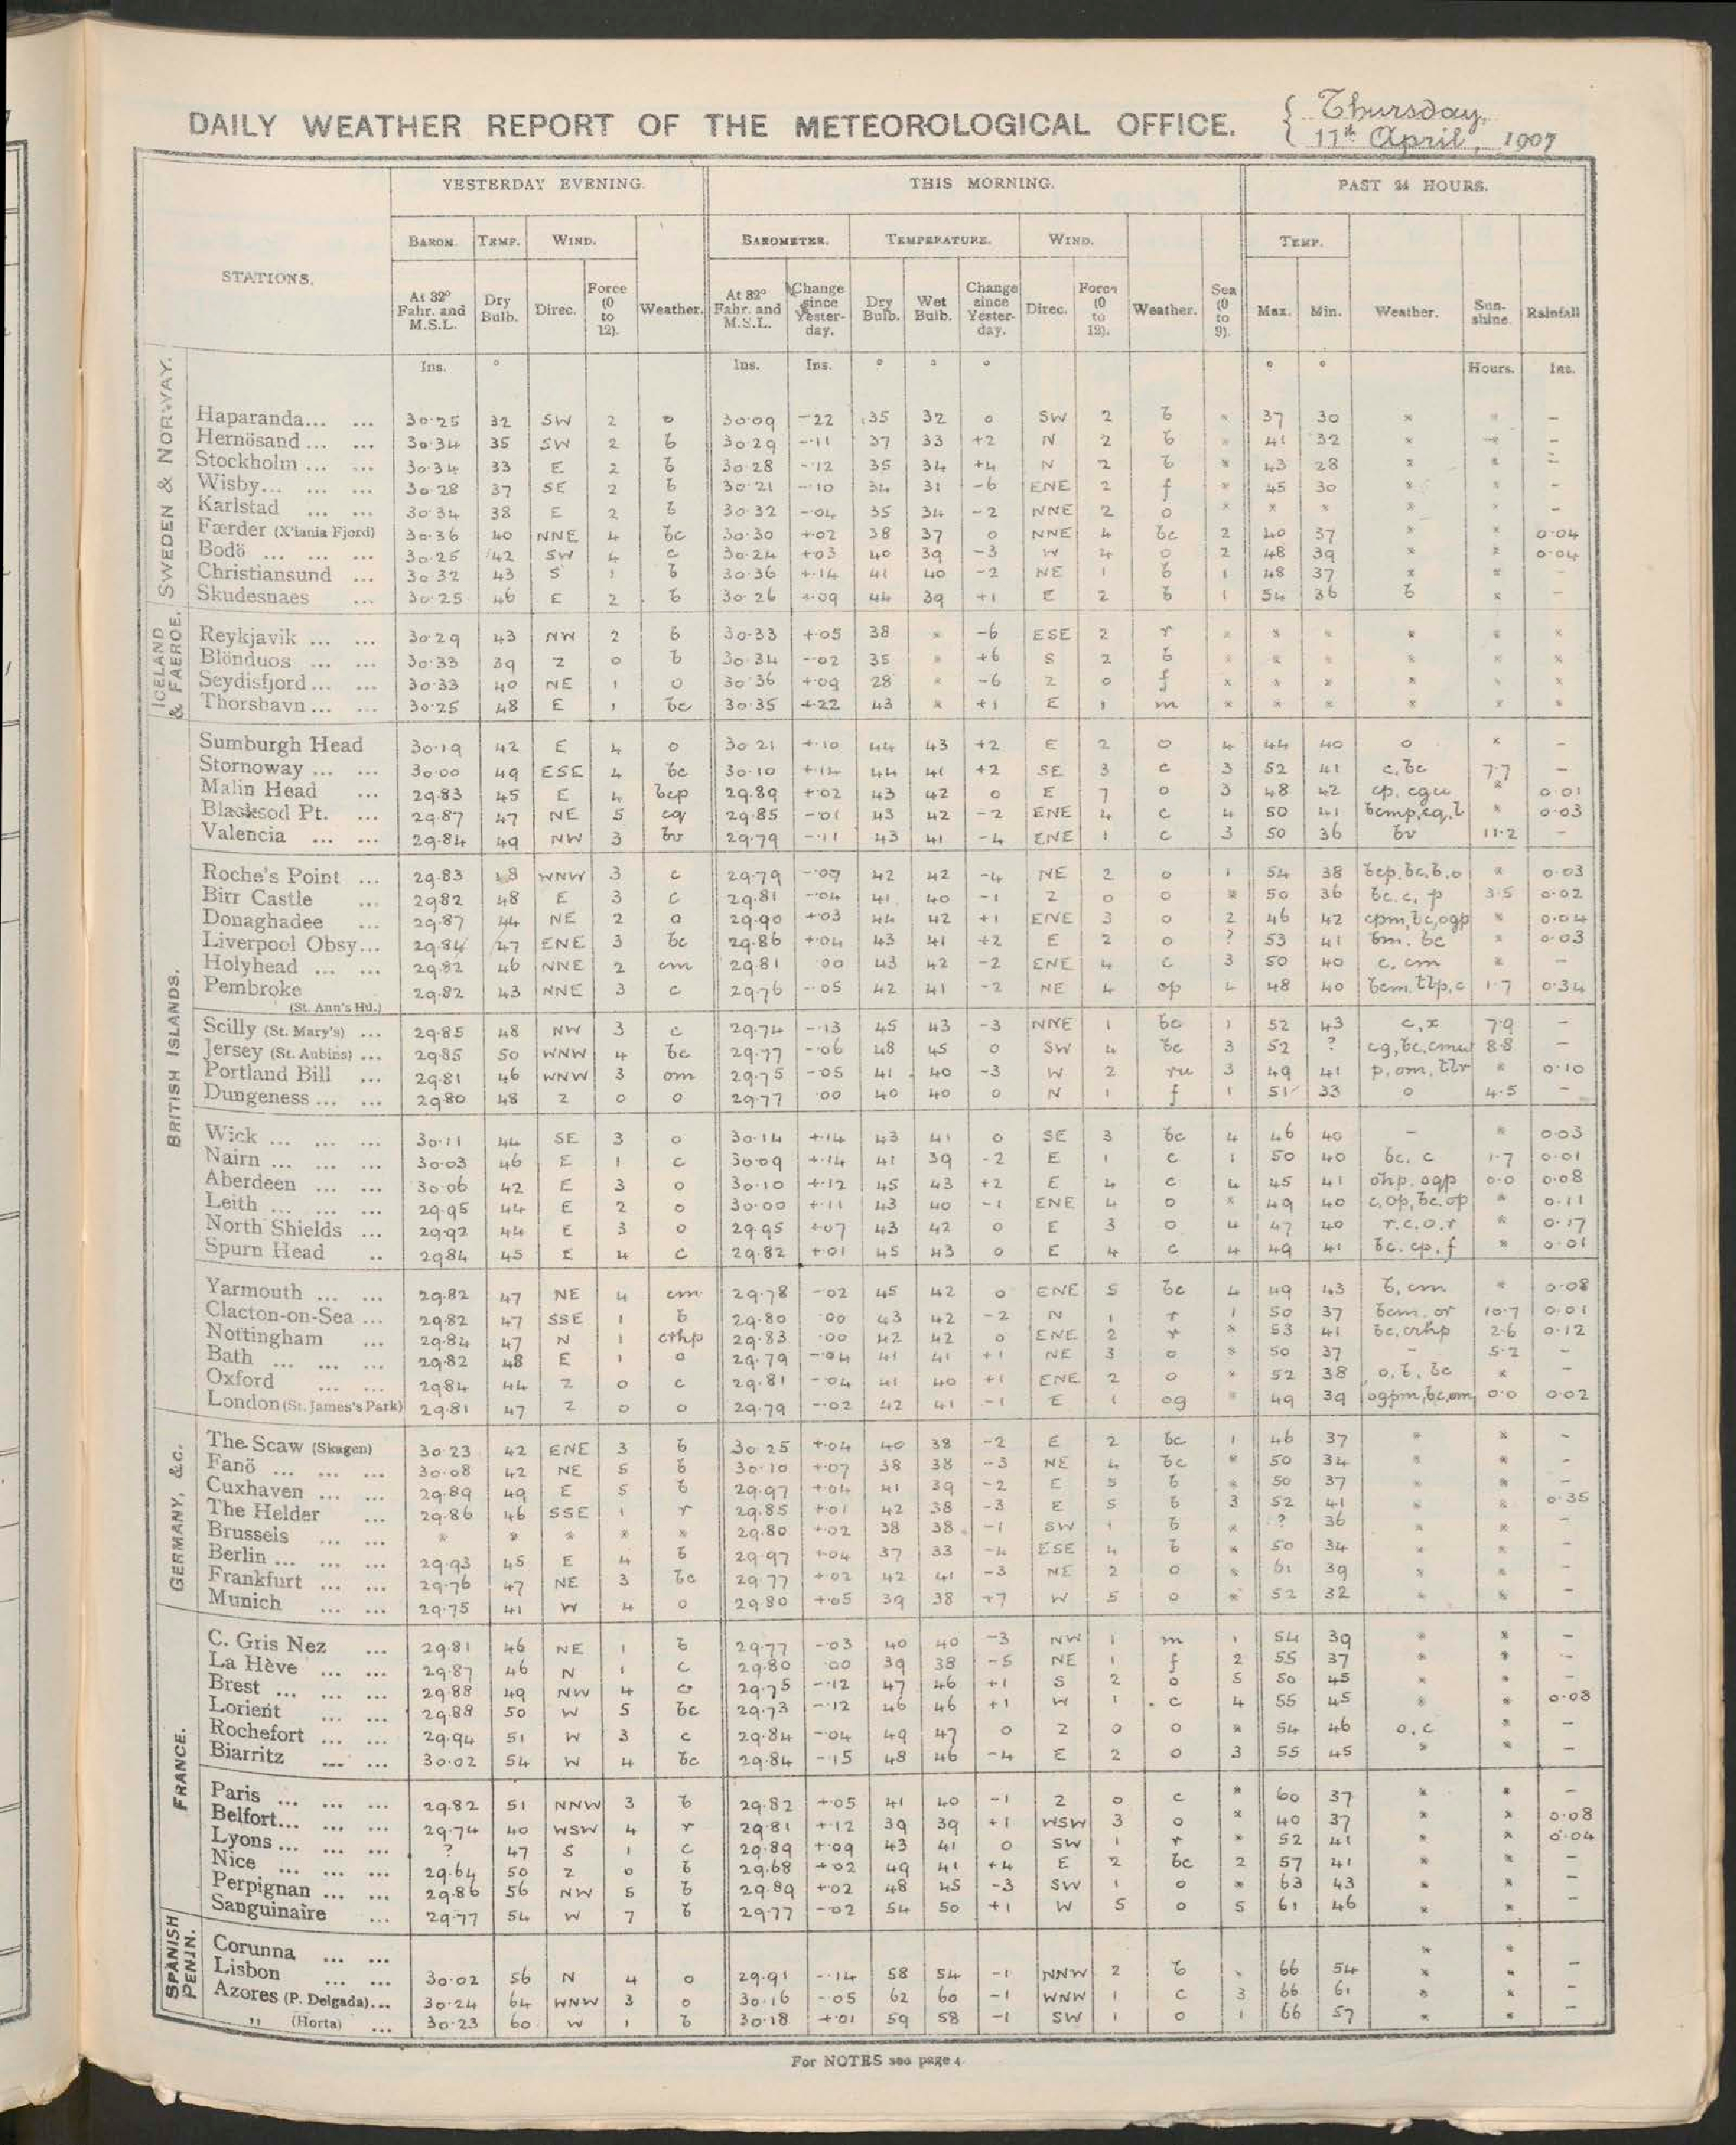 DAILY WEATHER REPORT OF THE METEOROLOGICAL OFFICE.
Thursday,
11th April, 1907
YESTERDAY EVENING. THIS MORNING. PAST 24 HOURS.
BAROM. TEMP. WIND. BAROMETER. TEMPERATURE. WIND. TEMP.
STATIONS. At 32° Fahr. and M.S.L. Dry Bulb. Direc. Force (0 to 12). Weather. At 32° Fahr. and M.S.L. Change since Yesterday. Dry Bulb. Wet Bulb. Change since Yesterday. Direc. Force (0 to 12). Weather. Sea (0 to 9). Max. Min. Weather. Sunshine. Rainfall
Ins. ° Ins. Ins. ° ° ° ° ° Hours. Ins.
SWEDEN & NORWAY.
Haparanda... ... 30·25 32 SW 2 o 30·09 -·22 35 32 0 SW 2 b * 37 30 * * -
Hernösand ... ... 30·34 35 SW 2 b 30·29 -·11 37 33 +2 N 2 b * 41 32 * * -
Stockholm ... ... 30·34 33 E 2 b 30·28 -·12 35 34 +4 N 2 b * 43 28 * * -
Wisby... ... ... 30·28 37 SE 2 b 30·21 -·10 34 31 -6 ENE 2 f * 45 30 * * -
Karlstad ... ... 30·34 38 E 2 b 30·32 -·04 35 34 -2 NNE 2 o * * * * * -
Færder (X'iania Fjord) 30·36 40 NNE 4 bc 30·30 +·02 38 37 0 NNE 4 bc 2 40 37 * * 0·04
Bodö ... ... ... 30·25 42 SW 4 c 30·24 +·03 40 39 -3 W 4 o 2 48 39 * * 0·04
Christiansund ... 30·32 43 S 1 b 30·36 +·14 41 40 -2 NE 1 b 1 48 37 * * -
Skudesnaes ... 30·25 46 E 2 b 30·26 +·09 44 39 +1 E 2 b 1 54 36 b * -
ICELAND & FAEROE.
Reykjavik ... ... 30·29 43 NW 2 b 30·33 +·05 38 * -6 ESE 2 r * * * * * *
Blönduos ... ... 30·33 39 Z 0 b 30·34 -·02 35 * +6 S 2 b * * * * * *
Seydisfjord ... ... 30·33 40 NE 1 o 30·36 +·09 28 * -6 Z 0 f * * * * * *
Thorshavn ... ... 30·25 48 E 1 bc 30·35 +·22 43 * +1 E 1 m * * * * * *
BRITISH ISLANDS.
Sumburgh Head 30·19 42 E 4 o 30·21 +·10 44 43 +2 E 2 o 4 44 40 o * -
Stornoway ... ... 30·00 49 ESE 4 bc 30·10 +·14 44 41 +2 SE 3 c 3 52 41 c, bc 7·7 -
Malin Head ... 29·83 45 E 4 bcp 29·89 +·02 43 42 0 E 7 o 3 48 42 cp, cgu * 0·01
Blacksod Pt. ... 29·87 47 NE 5 cq 29·85 -·01 43 42 -2 ENE 4 c 4 50 41 bcmp,cq,l * 0·03
Valencia ... ... 29·84 49 NW 3 bv 29·79 -·11 43 41 -4 ENE 1 c 3 50 36 bv 11·2
Roche's Point ... 29·83 48 WNW 3 c 29·79 -·09 42 42 -4 NE 2 o 1 54 38 bcp, bc, b, o * 0·03
Birr Castle ... 29·82 48 E 3 c 29·81 -·04 41 40 -1 Z 0 o * 50 36 bc, c, p 3·5 0·02
Donaghadee ... 29·87 44 NE 2 o 29·90 +·03 44 42 +1 ENE 3 o 2 46 42 cpm,bc,ogp * 0·04
Liverpool Obsy... 29·84 47 ENE 3 bc 29·86 +·04 43 41 +2 E 2 o ? 53 41 bm, bc * 0·03
Holyhead ... ... 29·82 46 NNE 2 cm 29·81 ·00 43 42 -2 ENE 4 c 3 50 40 c, cm * -
Pembroke (St. Ann's Hd.) 29·82 43 NNE 3 c 29·76 -·05 42 41 -2 NE 4 op 4 48 40 bcm, tlp, c 1·7 0·34
Scilly (St. Mary's) ... 29·85 48 NW 3 c 29·74 -·13 45 43 -3 NNE 1 bc 1 52 43 c, x 7·9 -
Jersey (St. Aubins) ... 29·85 50 WNW 4 bc 29·77 -·06 48 45 0 SW 4 bc 3 52 ? cg, bc, cmw 8·8 -
Portland Bill ... 29·81 46 WNW 3 om 29·75 -·05 41 40 -3 W 2 ru 3 49 41 p, om, tlr * 0·10
Dungeness ... ... 29·80 48 Z 0 o 29·77 ·00 40 40 0 N 1 f 1 51 33 o 4·5 -
Wick ... ... ... 30·11 44 SE 3 o 30·14 +·14 43 41 0 SE 3 bc 4 46 40 - * 0·03
Nairn ... ... ... 30·03 46 E 1 c 30·09 +·14 41 39 -2 E 1 c 1 50 40 bc, c 1·7 0·01
Aberdeen ... ... 30·06 42 E 3 o 30·10 +·12 45 43 +2 E 4 c 4 45 41 ohp, ogp 0·0 0·08
Leith ... ... ... 29·95 44 E 2 o 30·00 +·11 43 40 -1 ENE 4 o * 49 40 c, op, bc, op * 0·11
North Shields ... 29·92 44 E 3 o 29·95 +·07 43 42 0 E 3 o 4 47 40 r, c, o, r * 0·17
Spurn Head .. 29·84 45 E 4 c 29·82 +·01 45 43 0 E 4 c 4 49 41 bc, cp, f * 0·01
Yarmouth ... ... 29·82 47 NE 4 cm 29·78 -·02 45 42 0 ENE 5 bc 4 49 43 b, cm * 0·08
Clacton-on-Sea ... 29·82 47 SSE 1 b 29·80 ·00 43 42 -2 N 1 r 1 50 37 bcm, or 10·7 0·01
Nottingham ... 29·84 47 N 1 cthp 29·83 ·00 42 42 0 ENE 2 r * 53 41 bc, crhp 2·6 0·12
Bath ... ... ... 29·82 48 E 1 o 29·79 -·04 41 41 +1 NE 3 o * 50 37 - 5·2 -
Oxford ... ... 29·84 44 Z 0 c 29·81 -·04 41 40 +1 ENE 2 o * 52 38 o, b, bc * -
London (St. James's Park) 29·81 47 Z 0 o 29·79 -·02 42 41 -1 E 1 og * 49 39 ogpm,bc,om 0·0 0·02
GERMANY, &c.
The Scaw (Skagen) 30·23 42 ENE 3 b 30·25 +·04 40 38 -2 E 2 bc 1 46 37 * * -
Fanö ... ... ... 30·08 42 NE 5 b 30·10 +·07 38 38 -3 NE 4 bc * 50 34 * * -
Cuxhaven ... ... 29·89 49 E 5 b 29·97 +·04 41 39 -2 E 5 b * 50 37 * * -
The Helder ... 29·86 46 SSE 1 r 29·85 +·01 42 38 -3 E 5 b 3 52 41 * * 0·35
Brussels ... ... * * * * * 29·80 +·02 38 38 -1 SW 1 b * ? 36 * * -
Berlin ... ... ... 29·93 45 E 4 b 29·97 +·04 37 33 -4 ESE 4 b * 50 34 * * -
Frankfurt ... ... 29·76 47 NE 3 bc 29·77 +·02 42 41 -3 NE 2 o * 61 39 * * -
Munich ... ... 29·75 41 W 4 o 29·80 +·05 39 38 +7 W 5 o * 52 32 * * -
FRANCE.
C. Gris Nez ... 29·81 46 NE 1 b 29·77 -·03 40 40 -3 NW 1 m 1 54 39 * * -
La Hève ... ... 29·87 46 N 1 c 29·80 ·00 39 38 -5 NE 1 f 2 55 37 * * -
Brest ... ... ... 29·88 49 NW 4 o 29·75 -·12 47 46 +1 S 2 o 5 50 45 * * -
Lorient ... ... 29·88 50 W 5 bc 29·73 -·12 46 46 +1 W 1 c 4 55 45 * * 0·08
Rochefort ... ... 29·94 51 W 3 c 29·84 -·04 49 47 0 Z 0 o * 54 46 o, c * -
Biarritz ... ... 30·02 54 W 4 bc 29·84 -·15 48 46 -4 E 2 o 3 55 45 * * -
Paris ... ... ... 29·82 51 NNW 3 b 29·82 +·05 41 40 -1 Z 0 c * 60 37 * * -
Belfort... ... ... 29·74 40 WSW 4 r 29·81 +·12 39 39 +1 WSW 3 o * 40 37 * * 0·08
Lyons ... ... ... ? 47 S 1 c 29·89 +·09 43 41 0 SW 1 r * 52 41 * * 0·04
Nice ... ... ... 29·64 50 Z 0 b 29·68 +·02 49 41 +4 E 2 bc 2 57 41 * * -
Perpignan ... ... 29·86 56 NW 5 b 29·89 +·02 48 45 -3 SW 1 o * 63 43 * * -
Sanguinaire ... 29·77 54 W 7 b 29·77 -·02 54 50 +1 W 5 o 5 61 46 * * -
SPANISH PENIN.
Corunna ... ... * *
Lisbon ... ... 30·02 56 N 4 o 29·91 -·14 58 54 -1 NNW 2 b * 66 54 * * -
Azores (P. Delgada)... 30·24 64 WNW 3 o 30·16 -·05 62 60 -1 WNW 1 c 3 66 61 * * -
" (Horta) ... 30·23 60 W 1 b 30·18 +·01 59 58 -1 SW 1 o 1 66 57 * * -
For NOTES see page 4.